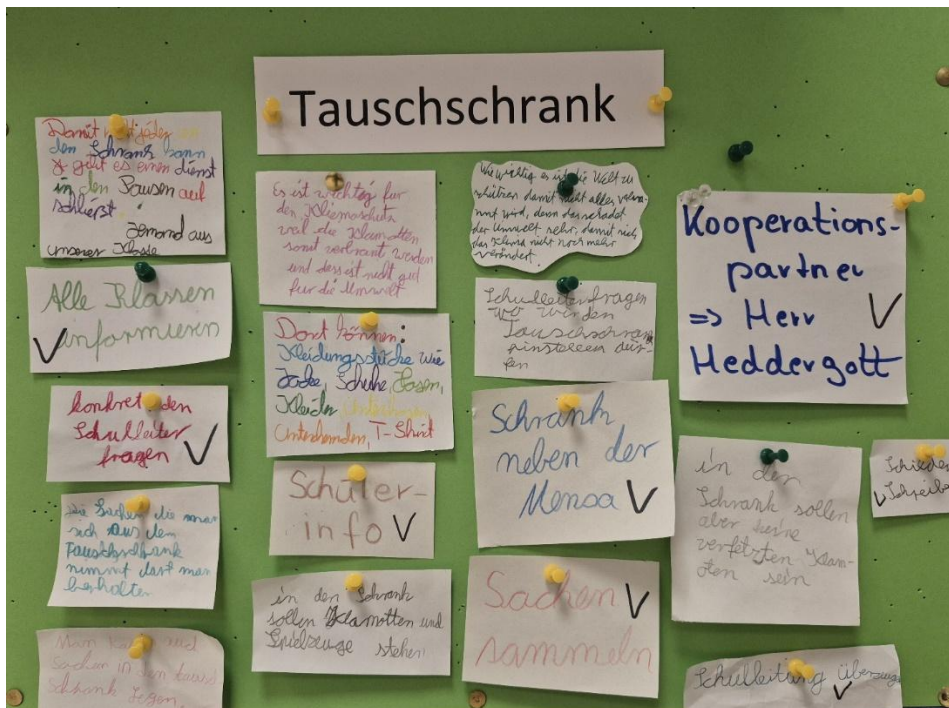 Tauschschrank
Damit nicht jeder
den Schrank kann
geht es einen dienst
in den Pausen auf
schlierst.
Jemand aus
unserer Klasse
Alle Klassen
informieren
konkret den
Schulleiter
fragen
Die Sachen die man
sich aus dem
Tauschschrank
nimmt darf man
berhalten
Sachen in den taus
Schrank legen,
Es ist wichtig für
den Kliemaschutz
weil die Klamotten
sonst verbrant werden
und dass ist nicht gut
für die Umwelt
Dort können:
Kleidungsstücke wie
Jacke, Schuhe, Hosen,
Kleider,
Unterhemden, T-Shirt
Schüler-
info
in den Schrank
sollen Klamotten und
Spielzeuge stehen
Wie wichtig es ist die Welt zu
schützen damit nicht alles verbra-
nnt wird, denn das schadet
der Umwelt sehr, damit sich
das Klima nicht noch mehr
verändert.
Schulleiter fragen
wo wir den
Tauschschrank
einstellen dür-
fen
Schrank
neben der
Mensa
Sachen
sammeln
Kooperations-
partner
=> Herr
Heddergott
in den
Schrank sollen
aber keine
verfetzten Klam-
oten sein
Schreibe
Schulleitung überzeug